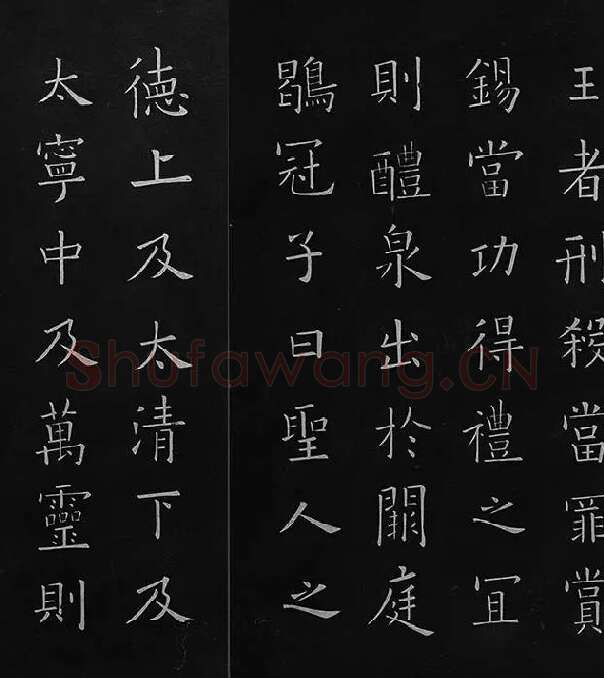 王者刑殺當罪賞
錫當功得禮之宜
則醴泉出於闕庭
鶡冠子曰聖人之
德上及太清下及
太寧中及萬靈則
Shufawang.CN